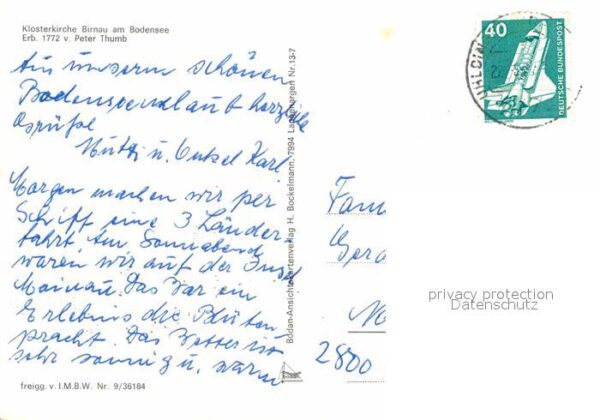 Klosterkirche Birnau am Bodensee
Erb. 1772 v. Peter Thumb
Aus unserm schönen
Bodenseeurlaub herzliche
Grüße
Mutti u. Onkel Karl
Morgen machen wir per
Schiff eine 3 Länder-
fahrt. Am Sonnabend
waren wir auf der Insel
Mainau. Das War ein
Erlebnis die Blüten
pracht. Das Wetter ist
sehr sonnig u. warm
freigg. v. I.M.B.W. Nr. 9/36184
Bodan-Ansichtskartenverlag H. Bockelmann, 7994 Langenargen Nr. 13-7
40
DEUTSCHE BUNDESPOST
UHLDIN
Fam
Ger
2800
privacy protection
Datenschutz